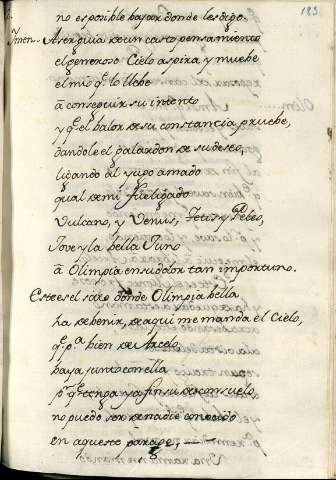 183
no es posible bajar donde les digo.
Ymen. A ser guia de un casto pensamiento
el generoso Cielo aspira, y muebe
el mio q.e lo llebe
a conseguir su intento
y q.e el balor de su constancia pruebe,
dandole el galardon de su deseo,
ligando al yugo amado
qual de mi fue ligado
Vulcano, y Venus, Tetis y Peleo,
Jove y la bella Juno
a Olimpia en su dolor tan importuno.
Este es el sitio donde Olimpia bella
ha de benir, de aqui me manda el Cielo,
q.e p.a bien de
baya junto con ella
p.r q.e tenga ya fin su desconsuelo
no puedo ser de nadie conocido
en aqueste parage,